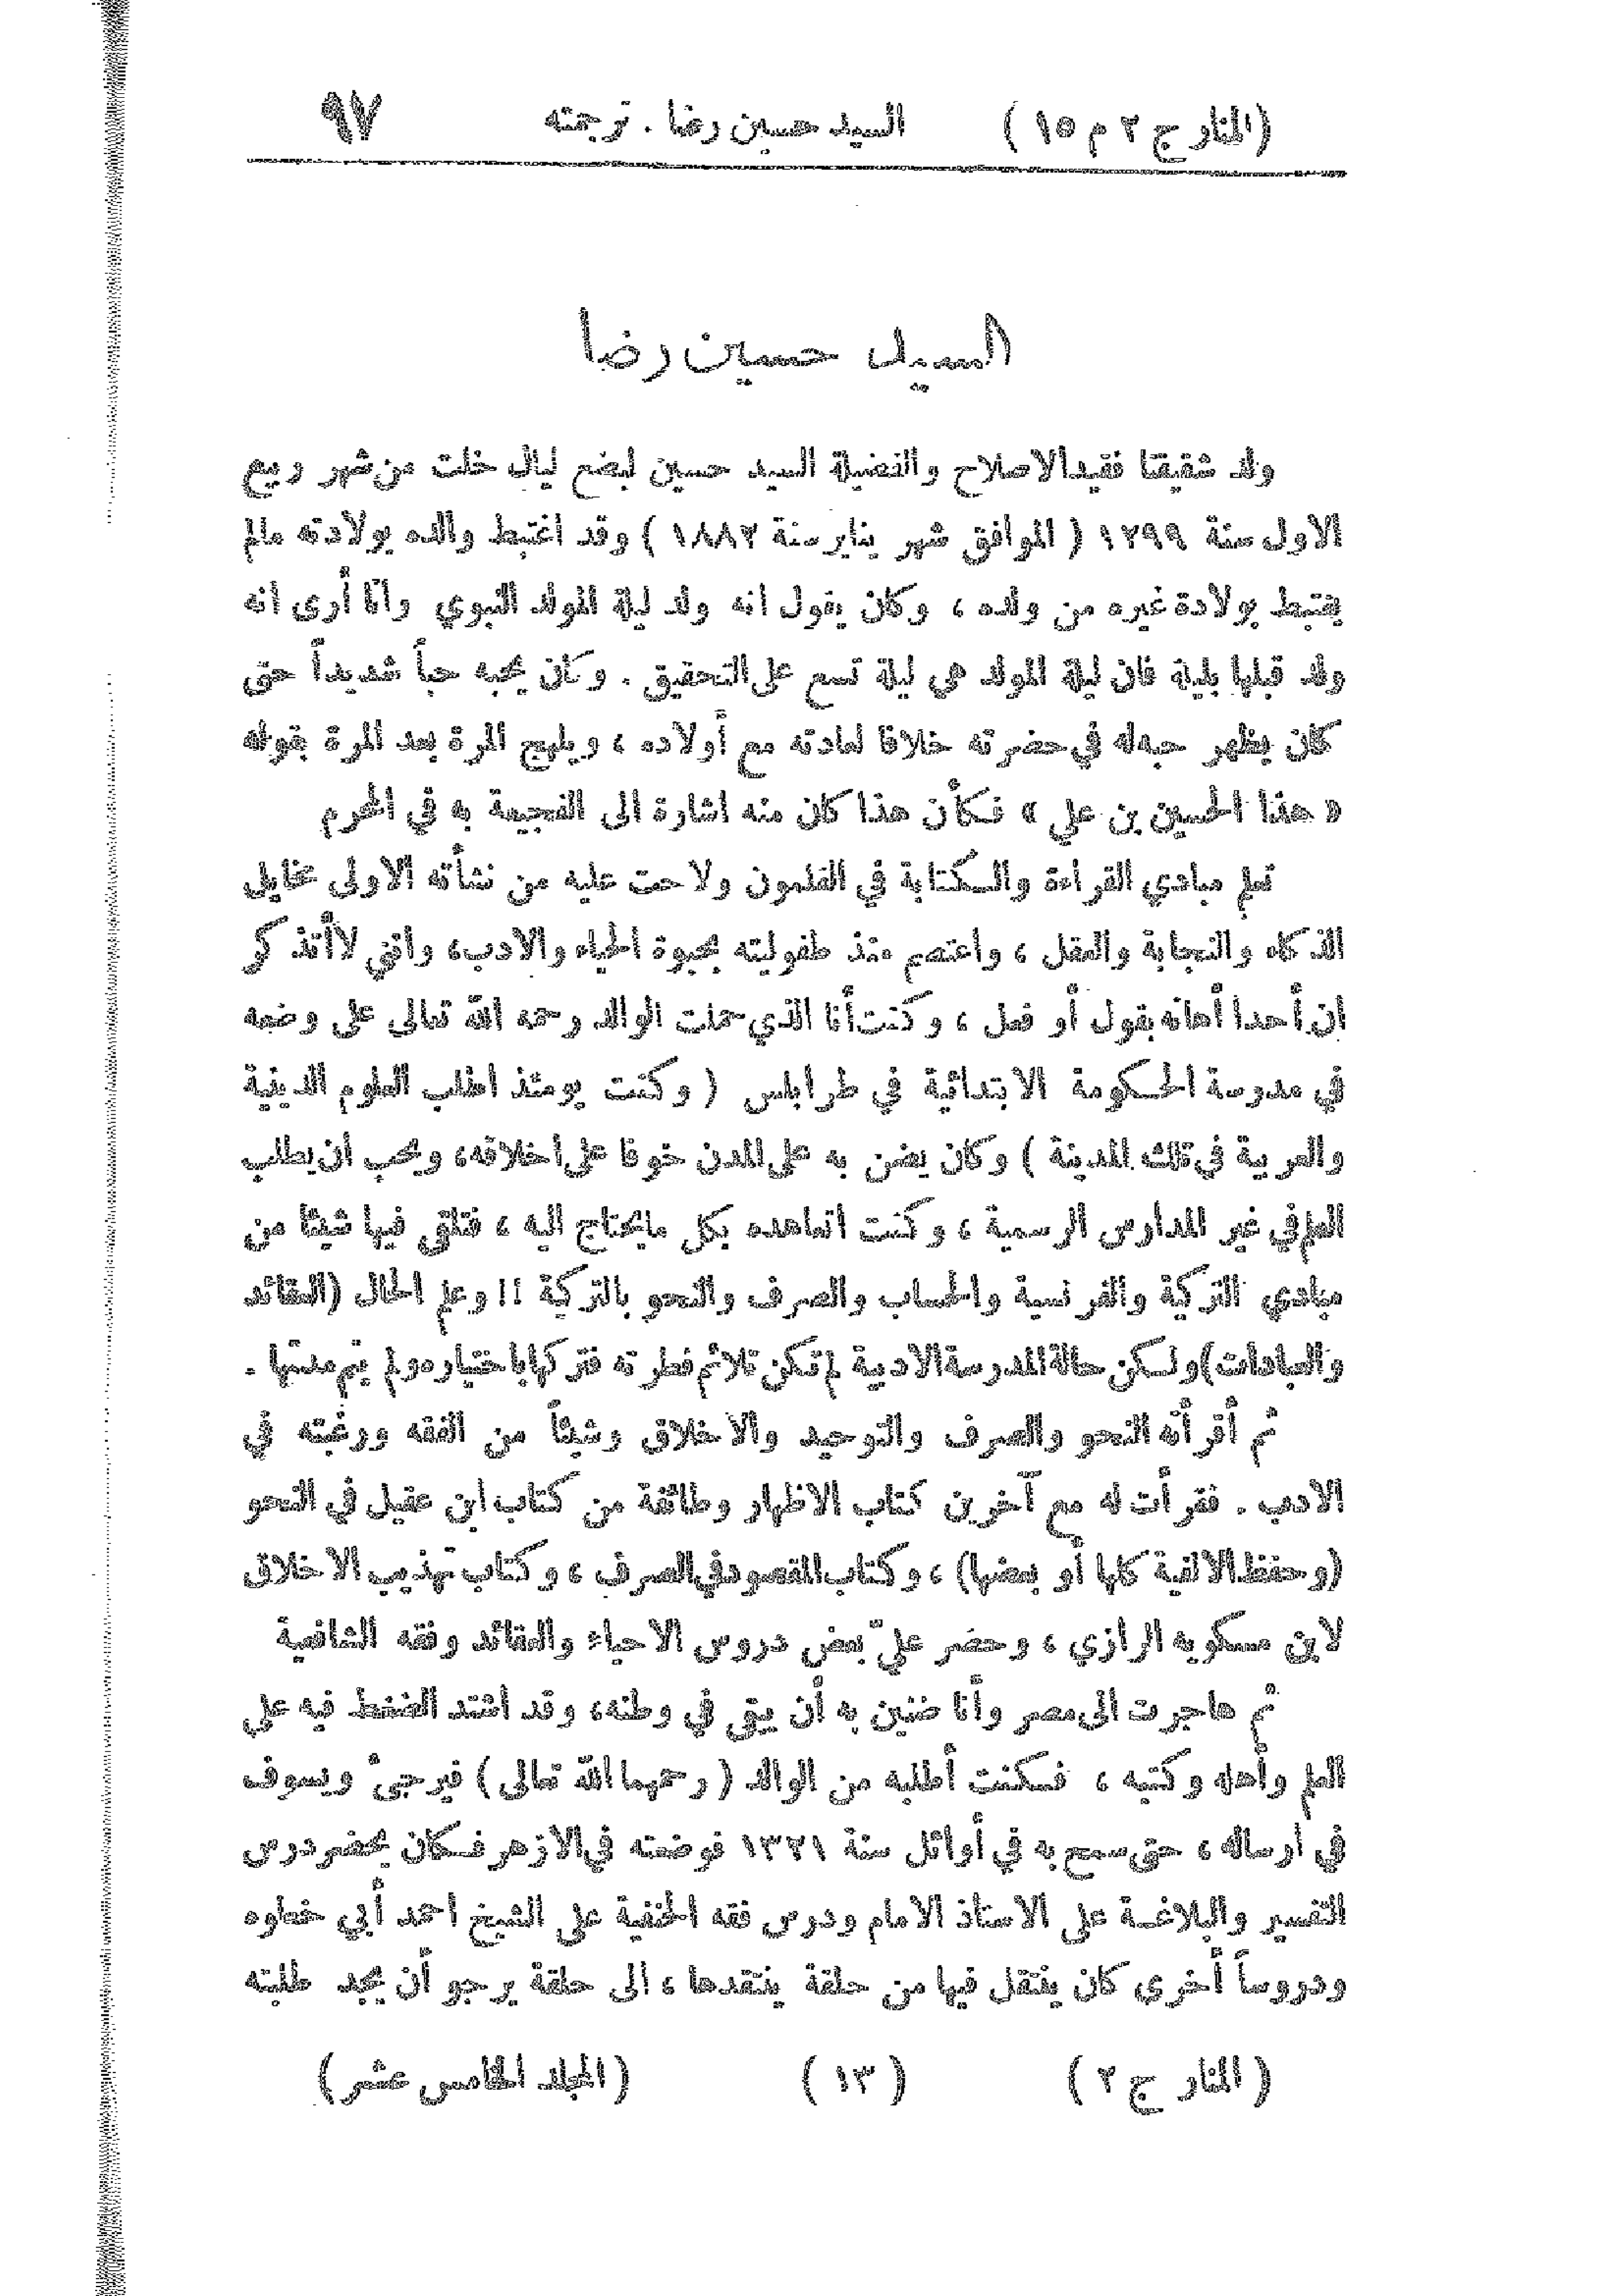 (المنار ج ٢ م ١٥) السيد حسين رضا . ترجمته ٩٧
السيد حسين رضا
ولد شقيقنا فقيد الاصلاح والفضيلة السيد حسين لبضع ليال خلت من شهر ربيع
الاول سنة ١٢٩٩ ( الموافق شهر يناير سنة ١٨٨٢ ) وقد اغتبط والده بولادته مالم
يغتبط بولادة غيره من ولده ، وكان يقول انه ولد ليلة المولد النبوي وأنا أرى انه
ولد قبلها بليلة فان ليلة المولد هي ليلة تسع على التحقيق . وكان يحبه حباً شديداً حتى
كان يظهر حبه له في حضرته خلافا لعادته مع أولاده ، ويلهج المرة بعد المرة بقوله
« هذا الحسين بن علي » فكأن هذا كان منه اشارة الى الفجيعة به في المحرم
تعلم مبادي القراءة والكتابة في القلمون ولاحت عليه من نشأته الاولى مخايل
الذكاء والنجابة والعقل ، واعتصم منذ طفوليته بحبوة الحياء والادب، وانني لا أتذكر
ان أحدا أهانه بقول أو فعل ، وكنت أنا الذي حملت الوالد رحمه الله تعالى على وضعه
في مدرسة الحكومة الابتدائية في طرابلس ( وكنت يومئذ اطلب العلوم الدينية
والعربية في تلك المدينة ) وكان يضن به على المدن خوفا على أخلاقه، ويحب أن يطلب
العلم في غير المدارس الرسمية ، وكنت اتعاهده بكل ما يحتاج اليه ، فتلقى فيها شيئا من
مبادي التركية والفرنسية والحساب والصرف والنحو بالتركية !! وعلم الحال (العقائد
والعبادات) ولكن حالة المدرسة الادبية لم تكن تلائم فطرته فتركها باختياره ولم يتم مدتها .
ثم أقرأته النحو والصرف والتوحيد والاخلاق وشيئاً من الفقه ورغبته في
الادب . فقرأت له مع آخرين كتاب الاظهار وطائفة من كتاب ابن عقيل في النحو
(وحفظ الالفية كلها أو بعضها) ، وكتاب المقصود في الصرف ، وكتاب تهذيب الاخلاق
لابن مسكويه الرازي ، وحضر عليّ بعض دروس الاحياء والعقائد وفقه الشافعية
ثم هاجرت الى مصر وأنا ضنين به أن يبقى في وطنه، وقد اشتد الضغط فيه على
العلم وأهله وكتبه ، فكنت أطلبه من الوالد ( رحمهما الله تعالى ) فيرجئ ويسوف
في ارساله ، حتى سمح به في أوائل سنة ١٣٢١ فوضعته في الازهر فكان يحضر درس
التفسير والبلاغة على الاستاذ الامام ودرس فقه الحنفية على الشيخ احمد أبي خطوه
ودروساً أخرى كان ينتقل فيها من حلقة ينتقدها ، الى حلقة يرجو أن يجد طلبته
( المنار ج ٢ ) ( ١٣ ) ( المجلد الخامس عشر )